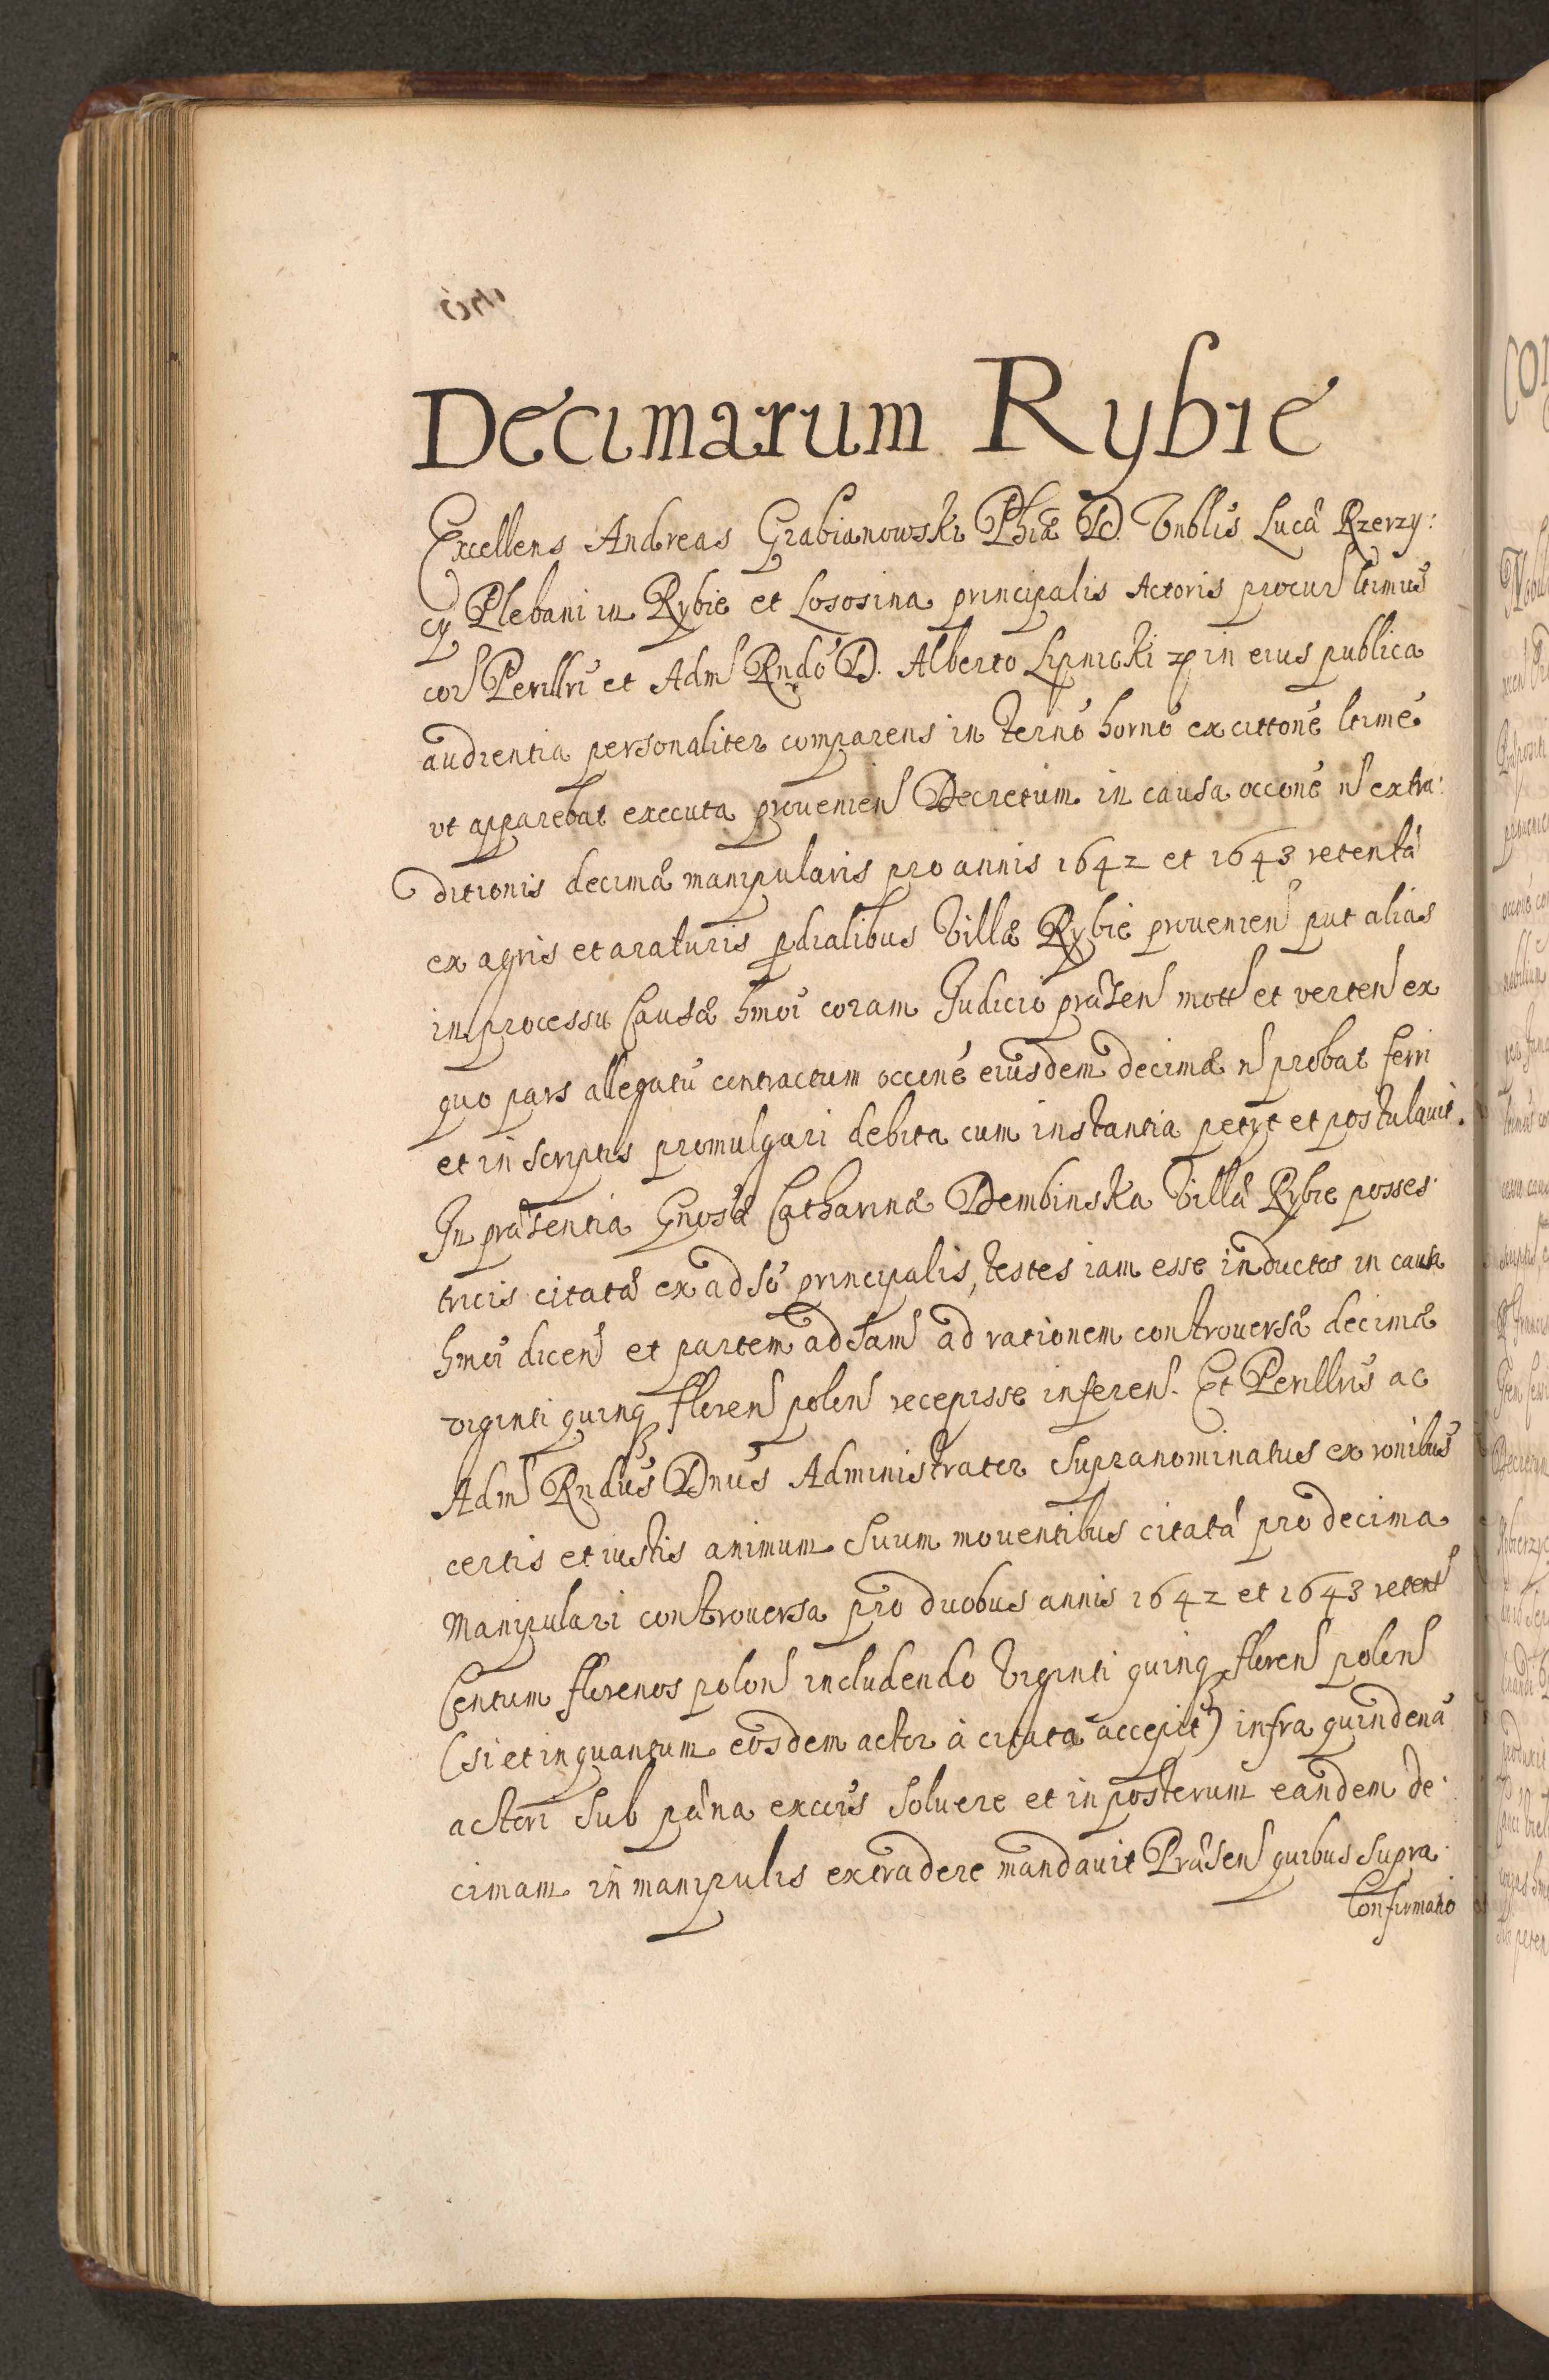 Decimarum Rybie
Excellens Andreas Grabianowski Phiæ D. Vnblis Lucæ Rzerzy:
cy Plebani in Rybie et Lososina principalis Actoris procur ltimus
cor Perillri et Adm Rndo D. Alberto Lipnicki in eius publica
audientia personaliter comparens in terno horno ex cittone ltime
vt apparebat executa prouenien Decretum in causa occone n extra:
ditionis decimæ manipularis pro annis 1642 et 1643 retentæ
ex agris et araturis pdialibus Villæ Rybie prouenien put alias
in processu Causæ hmoi coram Iudicio præsen mott et verten ex
quo pars allegatu contractum occone eiusdem decimæ n probat ferri
et in scriptis promulgari debita cum instantia petyt et postulauit.
In præsentia Gnosæ Catharinæ Dembinska Villæ Rybie posses:
tricis citatæ ex adso principalis, testes iam esse inductos in causa
hmoi dicen et partem adsam ad rationem controuersæ decimæ
viginti quinq floren polon recepisse inferen. Et Perillris ac
Adm Rndus Dnus Administrator supranominatus ex ronibus
certis et iustis animum suum mouentibus citatæ pro decima
manipulari controuersa pro duobus annis 1642 et 1643 reten
Centum florenos polon includendo Viginti quinq floren polon
(si et inquantum eosdem actor à citata accepit) infra quindena
actori sub pæna excois soluere et in posterum eandem de:
cimam in manipulis extradere mandauit Præsen quibus supra.
Confirmatio